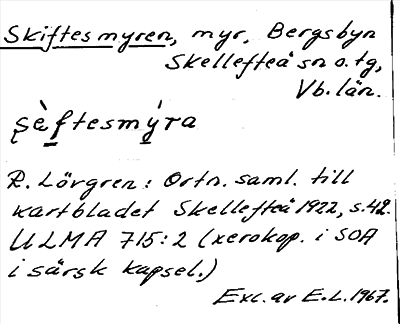 Skiftesmyren, myr, Bergsbyn
Skellefteå sn o. tg,
Vb. län.
şèftesmýra
R. Lövgren: Ortn. saml. till
kartbladet Skellefteå 1922, s. 42.
ULMA 715:2 (xerokop. i SOA
i särsk kapsel.)
Exc. av E.L. 1967.